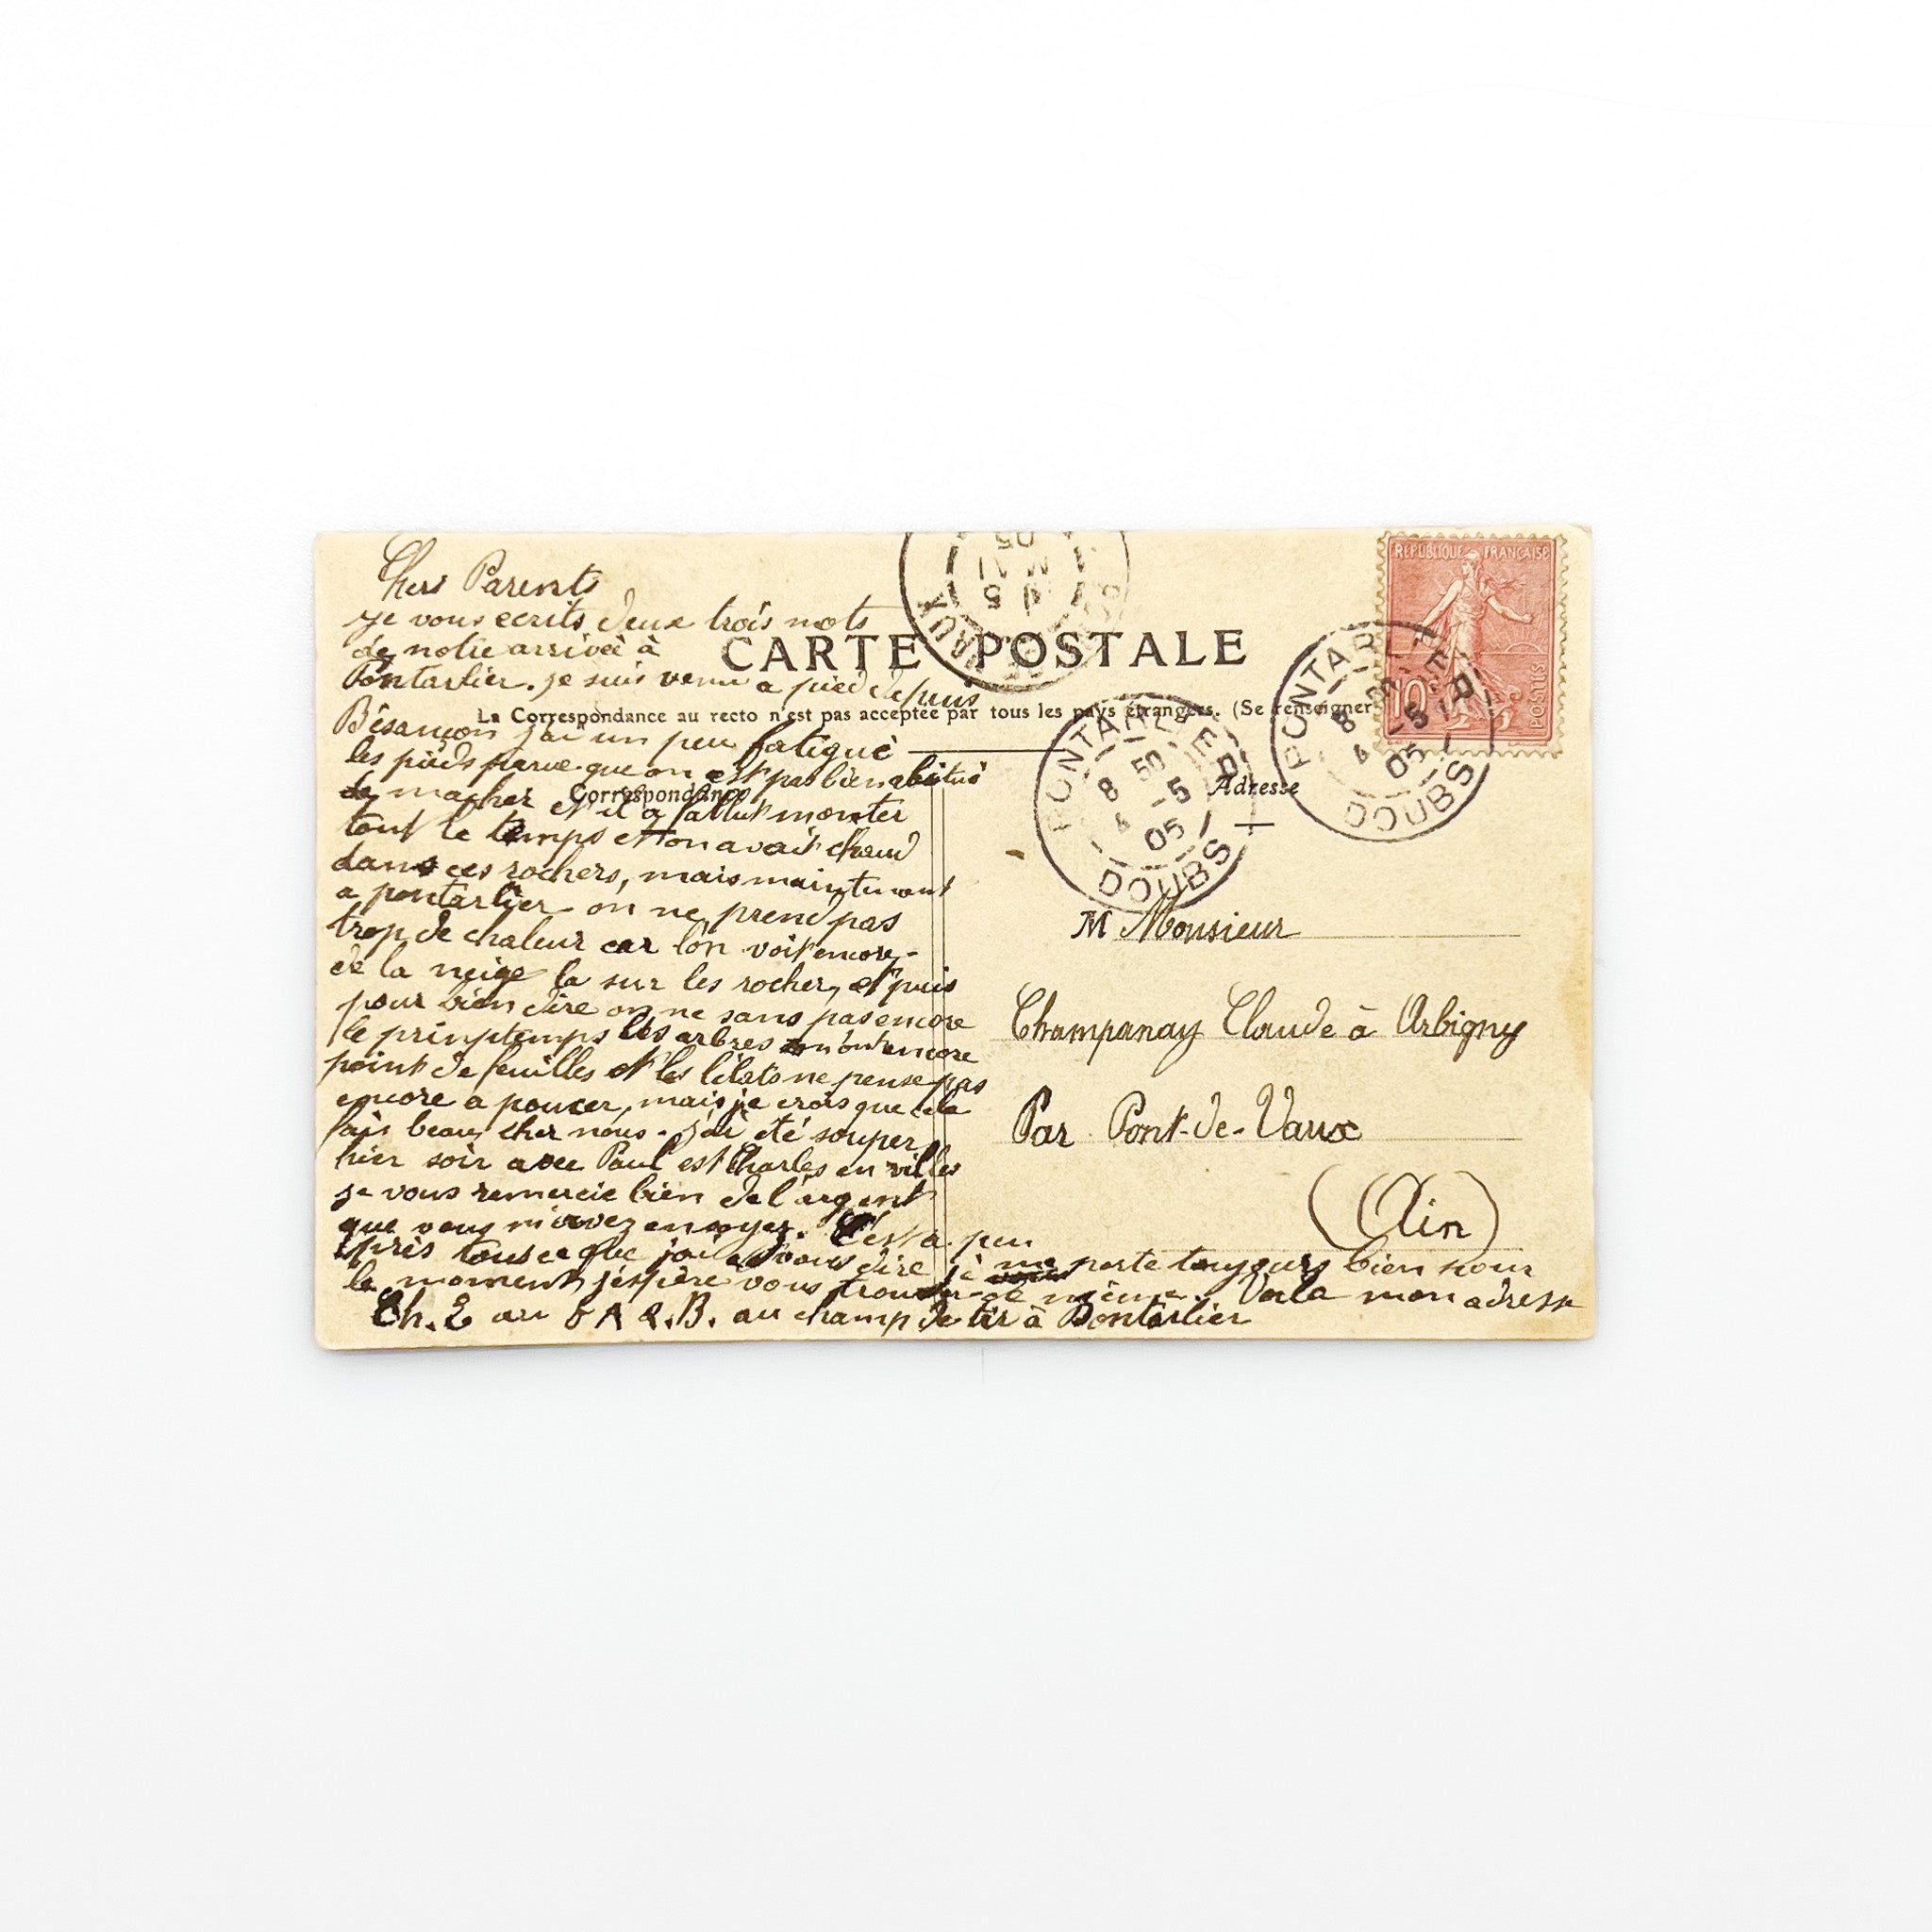 Chers Parents
je vous ecrits deux trois mots
de notre arrivée à
Pontarlier. je suis venu a pied depuis
Bésançon j'ai un peu fatigué
les pieds parce que on est pas bien abitué
de macher et il a fallut monter
tout le temps et on avait chaud
dans ces rochers, mais maintenant
a pontarlier on ne prend pas
trop de chaleur car l'on voit encore
de la neige la sur les rocher, et puis
pour bien dire on ne sans pas encore
le printemps les arbres n'ont encore
point de feuilles et les lilats ne pense pas
encore a poucer, mais je crois que cela
fais beau cher nous. j'ai été souper
hier soir avec Paul est Charles en villes
je vous remercie bien de l'argent
que vous m'avez envoyez. C'est a peu
près tous ce que j'ai a vous dire je me porte toujours bien pour
le moment j'éspère vous trouver de même. Voila mon adresse
Ch. E au A B. au champ de tir à Pontarlier
CARTE POSTALE
La Correspondance au recto n'est pas acceptée par tous les pays étrangers. (Se renseigner
Correspondance
Adresse
M Monsieur
Champanay Claude à Arbigny
Par Pont-de-Vaux
(Ain)
REPUBLIQUE FRANÇAISE
10
POSTES
PONTARLIER
8
4 -5
05
DOUBS
PONTARLIER
8 50
4 -5
05
DOUBS
VAUX
5
MAI
05